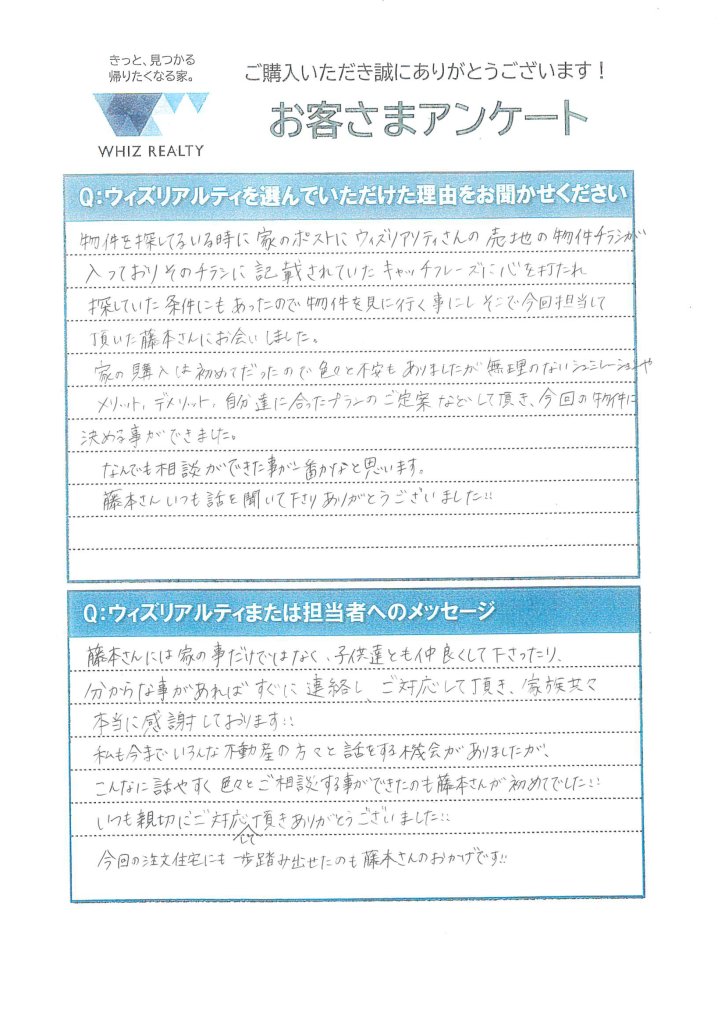 きっと、見つかる
帰りたくなる家。
WHIZ REALTY
ご購入いただき誠にありがとうございます！
お客さまアンケート
Q：ウィズリアルティを選んでいただけた理由をお聞かせください
物件を探してるいる時に家のポストにウィズリアリティさんの売地の物件チラシが
入っておりそのチラシに記載されていたキャッチフレーズに心を打たれ
探していた条件にもあったので物件を見に行く事にしそこで今回担当して
頂いた藤本さんにお会いしました。
家の購入は初めてだったので色々と不安もありましたが無理のないシュミレーションや
メリット、デメリット、自分達に合ったプランのご定案などして頂き、今回の物件に
決める事ができました。
なんでも相談ができた事が一番かなと思います。
藤本さんいつも話を聞いて下さりありがとうございました!!
Q：ウィズリアルティまたは担当者へのメッセージ
藤本さんには家の事だけではなく、子供達とも仲良くして下さったり、
分からな事があればすぐに連絡し、ご対応して頂き、家族共々
本当に感謝しております!!
私も今までいろんな不動産の方々と話をする機会がありましたが、
こんなに話やすく色々とご相談する事ができたのも藤本さんが初めてでした!!
いつも親切にご対応して頂きありがとうございました!!
今回の注文住宅にも一歩踏み出せたのも藤本さんのおかげです!!